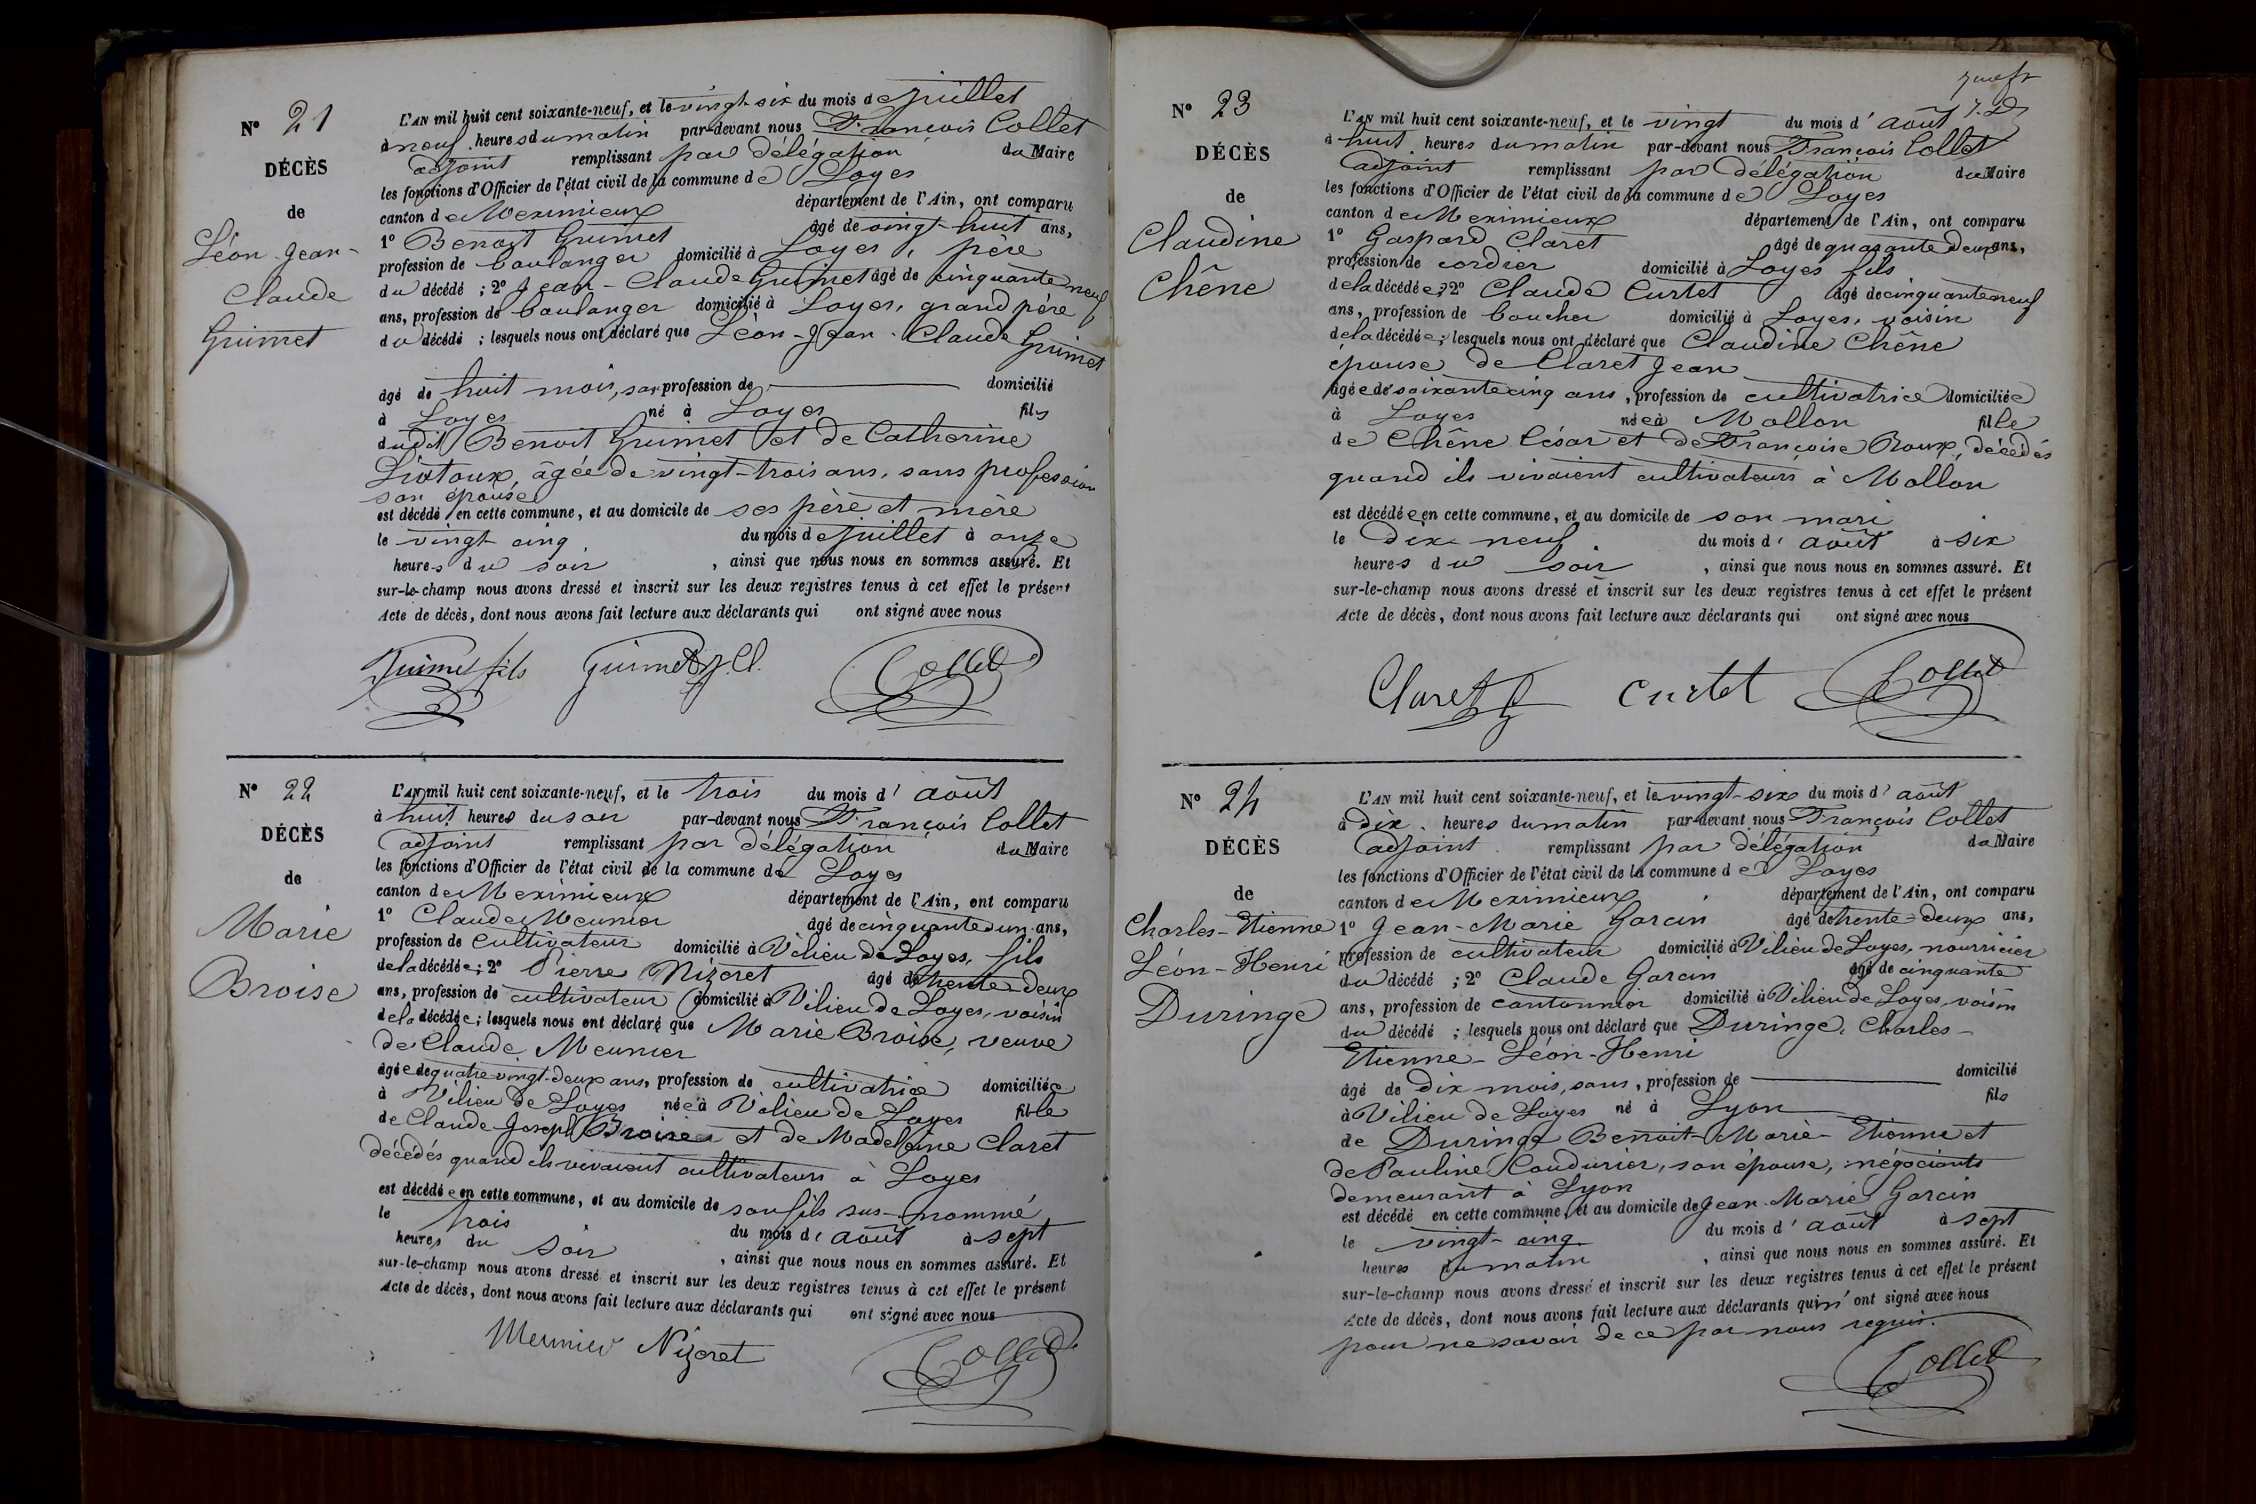 N° 21
DÉCÈS
de
Léon-Jean-
Claude
Guimet
L'AN mil huit cent soixante-neuf, et le vingt-six du mois de juillet
à neuf heures du matin par-devant nous François Collet
adjoint remplissant par délégation du Maire
les fonctions d'Officier de l'état civil de la commune de Loyes
canton de Meximieux département de l'Ain, ont comparu
1° Benoit Guimet âgé de vingt-huit ans,
profession de boulanger domicilié à Loyes, père
du décédé ; 2° Jean-Claude Guimet âgé de cinquante neuf
ans, profession de boulanger domicilié à Loyes, grand père
du décédé ; lesquels nous ont déclaré que Léon-Jean-Claude Guimet
âgé de huit mois, sans profession de domicilié
à Loyes né à Loyes fils
dudit Benoit Guimet et de Catherine
Liotoux, âgée de vingt-trois ans, sans profession
son épouse
est décédé en cette commune, et au domicile de ses père et mère
le vingt cinq du mois de juillet à onze
heures du soir , ainsi que nous nous en sommes assuré. Et
sur-le-champ nous avons dressé et inscrit sur les deux registres tenus à cet effet le présent
Acte de décès, dont nous avons fait lecture aux déclarants qui ont signé avec nous
Guimet fils Guimet J. Cl. Collet
N° 22
DÉCÈS
de
Marie
Broise
L'AN mil huit cent soixante-neuf, et le trois du mois d' août
à huit heures du soir par-devant nous François Collet
adjoint remplissant par délégation du Maire
les fonctions d'Officier de l'état civil de la commune de Loyes
canton de Meximieux département de l'Ain, ont comparu
1° Claude Meunier âgé de cinquante un ans,
profession de cultivateur domicilié à Vilieu de Loyes, fils
de la décédée ; 2° Pierre Nizeret âgé de trente-deux
ans, profession de cultivateur domicilié à Vilieu de Loyes, voisin
de la décédée ; lesquels nous ont déclaré que Marie Broise, veuve
de Claude Meunier
âgée de quatre vingt-deux ans, profession de cultivatrice domiciliée
à Vilieu de Loyes née à Vilieu de Loyes fille
de Claude-Joseph Broise et de Madeleine Claret
décédés quand ils vivaient cultivateurs à Loyes
est décédée en cette commune, et au domicile de son fils sus-nommé
le trois du mois d' août à sept
heures du soir , ainsi que nous nous en sommes assuré. Et
sur-le-champ nous avons dressé et inscrit sur les deux registres tenus à cet effet le présent
Acte de décès, dont nous avons fait lecture aux déclarants qui ont signé avec nous
Meunier Nizeret Collet
N° 23
DÉCÈS
de
Claudine
Chêne
L'AN mil huit cent soixante-neuf, et le vingt du mois d' août
à huit heures du matin par-devant nous François Collet
adjoint remplissant par délégation du Maire
les fonctions d'Officier de l'état civil de la commune de Loyes
canton de Meximieux département de l'Ain, ont comparu
1° Gaspard Claret âgé de quarante deux ans,
profession de cordier domicilié à Loyes fils
de la décédée ; 2° Claude Curtet âgé de cinquante neuf
ans, profession de boucher domicilié à Loyes, voisin
de la décédée ; lesquels nous ont déclaré que Claudine Chêne
épouse de Claret Jean
âgée de soixante cinq ans, profession de cultivatrice domiciliée
à Loyes née à Mollon fille
de Chêne César et de Françoise Roux, décédés
quand ils vivaient cultivateurs à Mollon
est décédée en cette commune, et au domicile de son mari
le Dix-neuf du mois d' août à six
heures du soir , ainsi que nous nous en sommes assuré. Et
sur-le-champ nous avons dressé et inscrit sur les deux registres tenus à cet effet le présent
Acte de décès, dont nous avons fait lecture aux déclarants qui ont signé avec nous
Claret G Curtet Collet
N° 24
DÉCÈS
de
Charles-Etienne
Léon-Henri
Duringe
L'AN mil huit cent soixante-neuf, et le vingt-six du mois d' août
à Dix heures du matin par-devant nous François Collet
adjoint remplissant par délégation du Maire
les fonctions d'Officier de l'état civil de la commune de Loyes
canton de Meximieux département de l'Ain, ont comparu
1° Jean-Marie Garcin âgé de trente-deux ans,
profession de cultivateur domicilié à Vilieu de Loyes, nourricier
du décédé ; 2° Claude Garcin âgé de cinquante
ans, profession de cantonnier domicilié à Vilieu de Loyes, voisin
du décédé ; lesquels nous ont déclaré que Duringe, Charles-
Etienne-Léon-Henri
âgé de Dix mois, sans, profession de domicilié
à Vilieu de Loyes né à Lyon fils
de Duringe Benoit-Marie-Etienne et
de Pauline Coudurier, son épouse, négociants
demeurant à Lyon
est décédé en cette commune, et au domicile de Jean-Marie Garcin
le vingt-cinq du mois d' août à sept
heures du matin , ainsi que nous nous en sommes assuré. Et
sur-le-champ nous avons dressé et inscrit sur les deux registres tenus à cet effet le présent
Acte de décès, dont nous avons fait lecture aux déclarants qui n' ont signé avec nous
pour ne savoir de ce par nous requis.
Collet